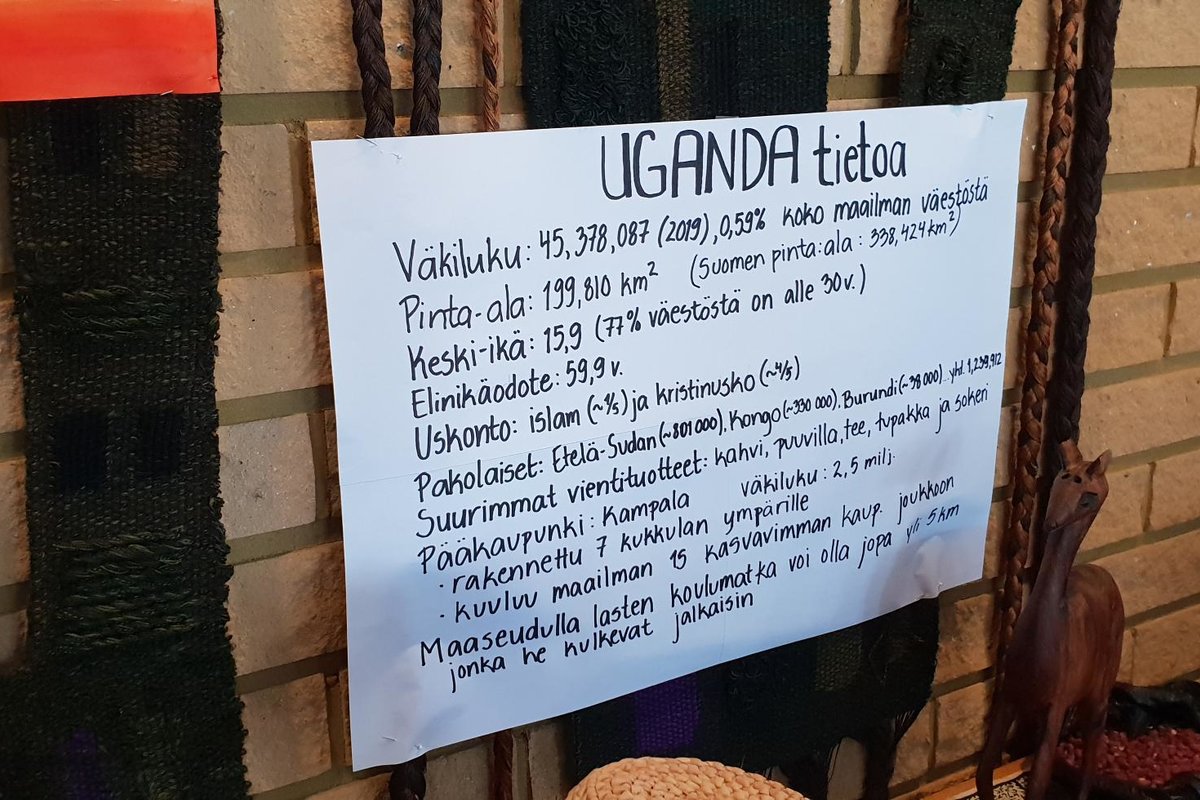 UGANDA tietoa
Väkiluku: 45,378,087 (2019), 0,59% koko maailman väestöstä
Pinta-ala: 199,810 km² (Suomen pinta-ala: 338,424 km²)
Keski-ikä: 15,9 (77% väestöstä on alle 30 v.)
Elinikäodote: 59,9 v.
Uskonto: islam (~1/5) ja kristinusko (~4/5)
Pakolaiset: Etelä-Sudan (~801 000), Kongo (~330 000), Burundi (~38 000)... yht. 1,239,912
Suurimmat vientituotteet: kahvi, puuvilla, tee, tupakka ja sokeri
Pääkaupunki: Kampala väkiluku: 2,5 milj.
· rakennettu 7 kukkulan ympärille
· kuuluu maailman 15 kasvavimman kaup. joukkoon
Maaseudulla lasten koulumatka voi olla jopa yli 5 km
jonka he kulkevat jalkaisin